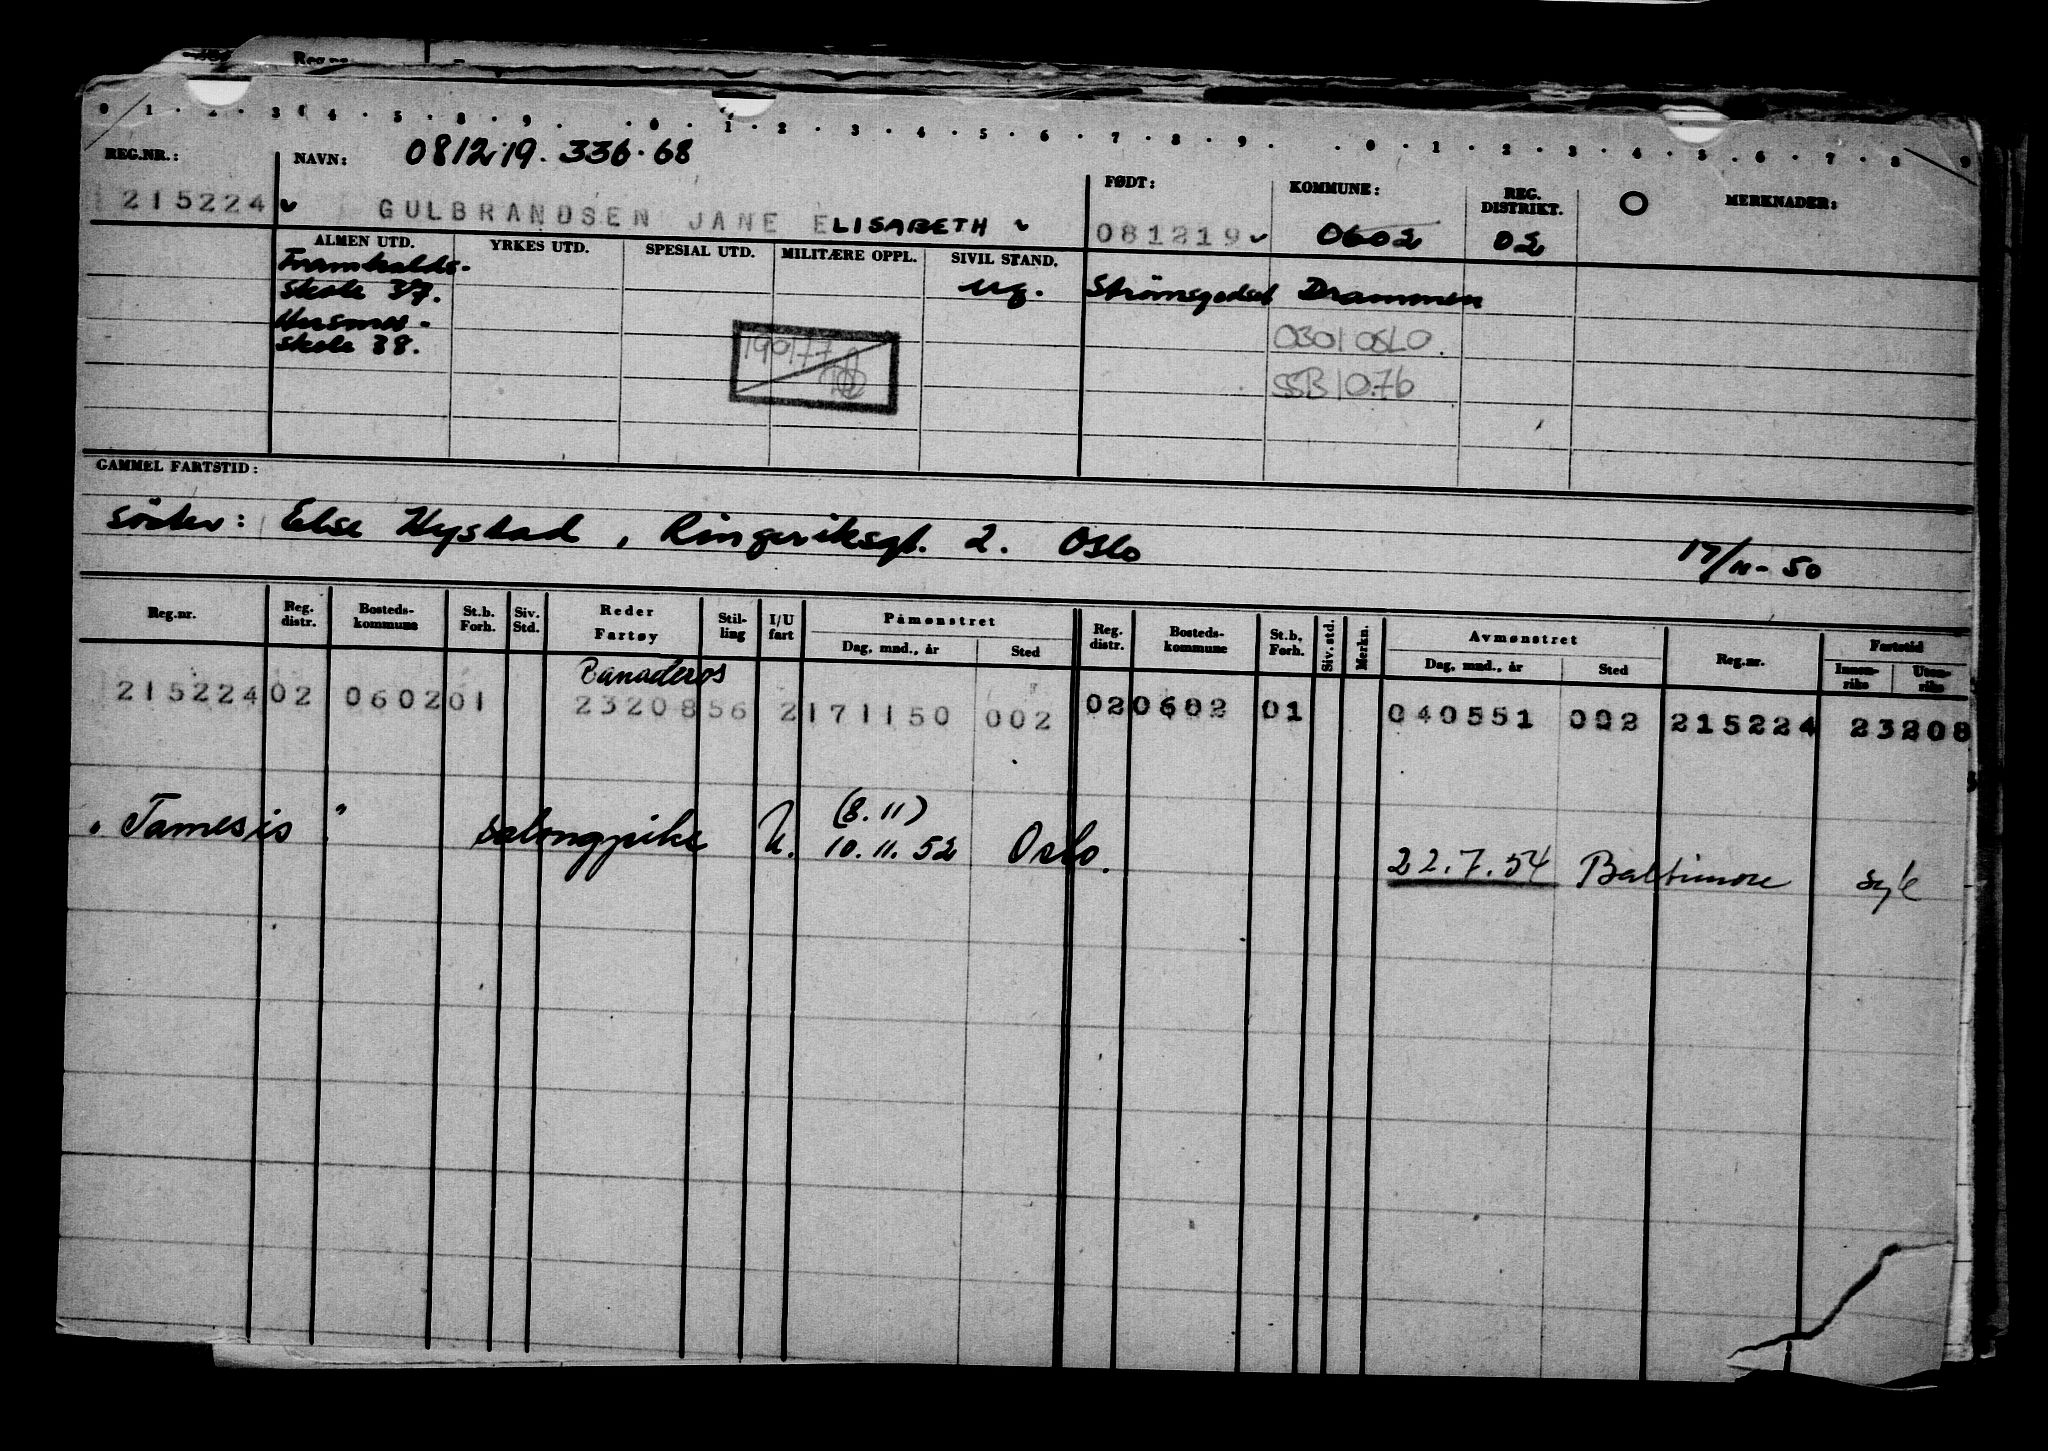 0 1 . 2 . 3 . 4 . 5 . 8 . 9 . . 0 . 1 . 2 . 3 . 4 . 5 . 6 . 7 . 8 . 9 . . 0 . 1 . 2 . 3 . 4 . 5 . 6 . 7 . 8 . 9
REG.NR.: NAVN: 081219.336.68 FØDT: KOMMUNE: REG. DISTRIKT. O MERKNADER:
215224 GULBRANDSEN JANE ELISABETH 081219 0602 02
ALMEN UTD. YRKES UTD. SPESIAL UTD. MILITÆRE OPPL. SIVIL STAND.
Framhalds- ug. Strömsgodset Drammen
skole 37.
Husmor- 190177 0301 OSLO
skole 38. SSB 10.76
GAMMEL FARTSTID:
söster: Else Hystad, Ringeriksgt. 2. Oslo 17/11-50
Reg.nr. Reg. distr. Bosteds- kommune St.b. Forh. Siv. Std. Reder Fartøy Stil- ling I/U fart Påmønstret Dag, mnd., år Sted Reg. distr. Bosteds- kommune St.b. Forh. Siv. std. Merkn. Avmønstret Dag, mnd., år Sted Reg.nr. Fartstid Innen- riks Uten- riks
Banaderos
215224 02 0602 01 23208 56 2 171150 002 02 0602 01 040551 002 215224 23208
(8.11)
"Tamesis" salongpike U. 10.11.52 Oslo. 22.7.54 Baltimore syk